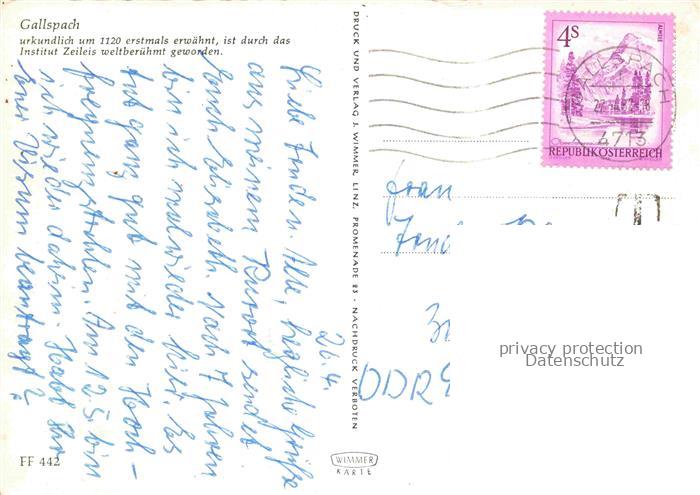 Gallspach
urkundlich um 1120 erstmals erwähnt, ist durch das
Institut Zeileis weltberühmt geworden.
26.4.
Liebe Alle, herzliche Grüße
aus meinem Kurort sendet
Euch Elisabeth. Nach 7 Jahren
bin ich mal wieder hier. Es
tut ganz gut mit den Hoch-
frequenzstrahlen. Am 12.5. bin
ich wieder daheim. Habt Ihr
Euer Visum beantragt?
FF 442
DRUCK UND VERLAG J. WIMMER, LINZ, PROMENADE 23 · NACHDRUCK VERBOTEN
WIMMER
KARTE
4S
ALMSEE
REPUBLIK ÖSTERREICH
GALLSPACH
4713
Frau
DDR
privacy protection
Datenschutz